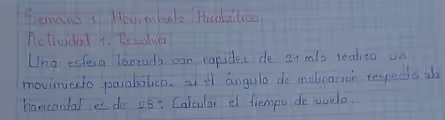 Semana 1. Movimiento Parabólico
Actividad 1. Resolver
Una esfera lanzada con rapidez de 21 m/s realiza un
movimiento parabólico. si el ángulo de inclinación respecto a la
horizontal es de 28° Calcular el tiempo de vuelo.